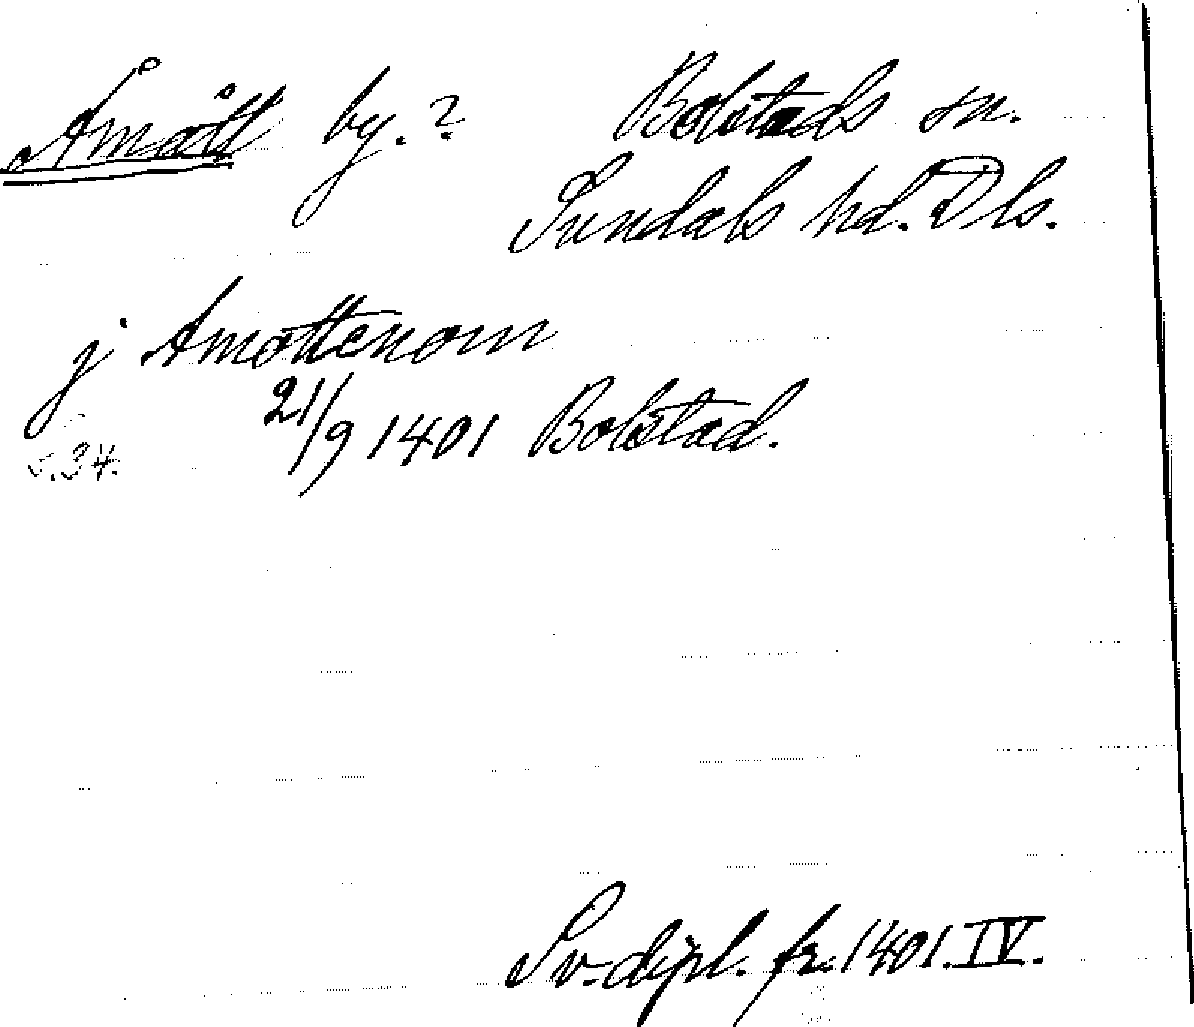 Åmått by.? Bolstads sn.
Sundals hd. Dls.
j Amottenom
21/9 1401 Bolstad.
s. 34.
Sv. dipl. fr. 1401. IV.